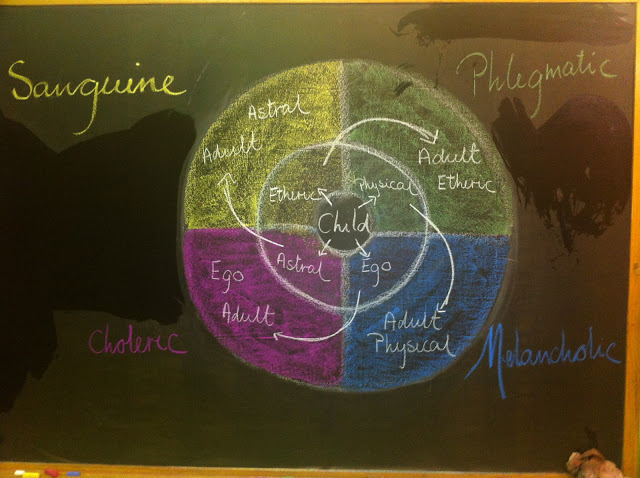 Sanguine
Phlegmatic
Astral
Adult
Adult
Etheric
Etheric
Physical
Child
Astral
Ego
Ego
Adult
Adult
Physical
Choleric
Melancholic